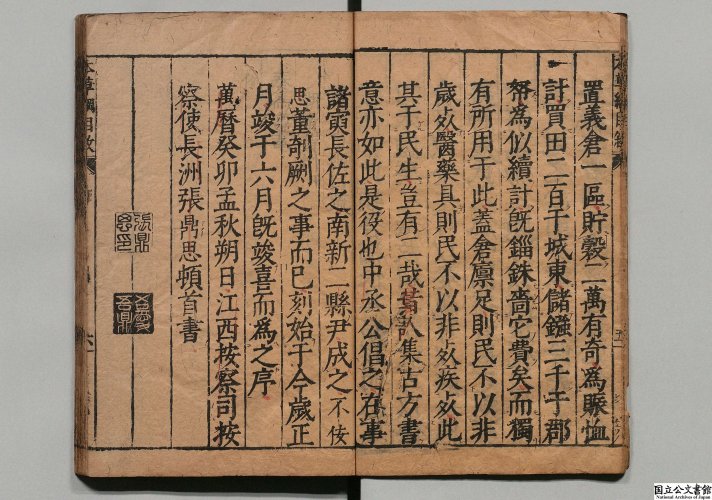 置義倉一區貯穀二萬有奇為賑恤
計買田二百于城東儲鏹三千于郡
帑為似續計既錙銖嗇它費矣而獨
有所用于此蓋倉廩足則民不以非
歲死醫藥具則民不以非死疾死此
其于民生豈有二哉昔人集古方書
意亦如此是役也中丞公倡之在事
諸寅長佐之南新二縣尹成之不佞
思董剞劂之事而已刻始于今歲正
月竣于六月既竣喜而為之序
萬曆癸卯孟秋朔日江西按察司按
察使長洲張鼎思頓首書
張鼎思印
本草綱目敘
国立公文書館
National Archives of Japan